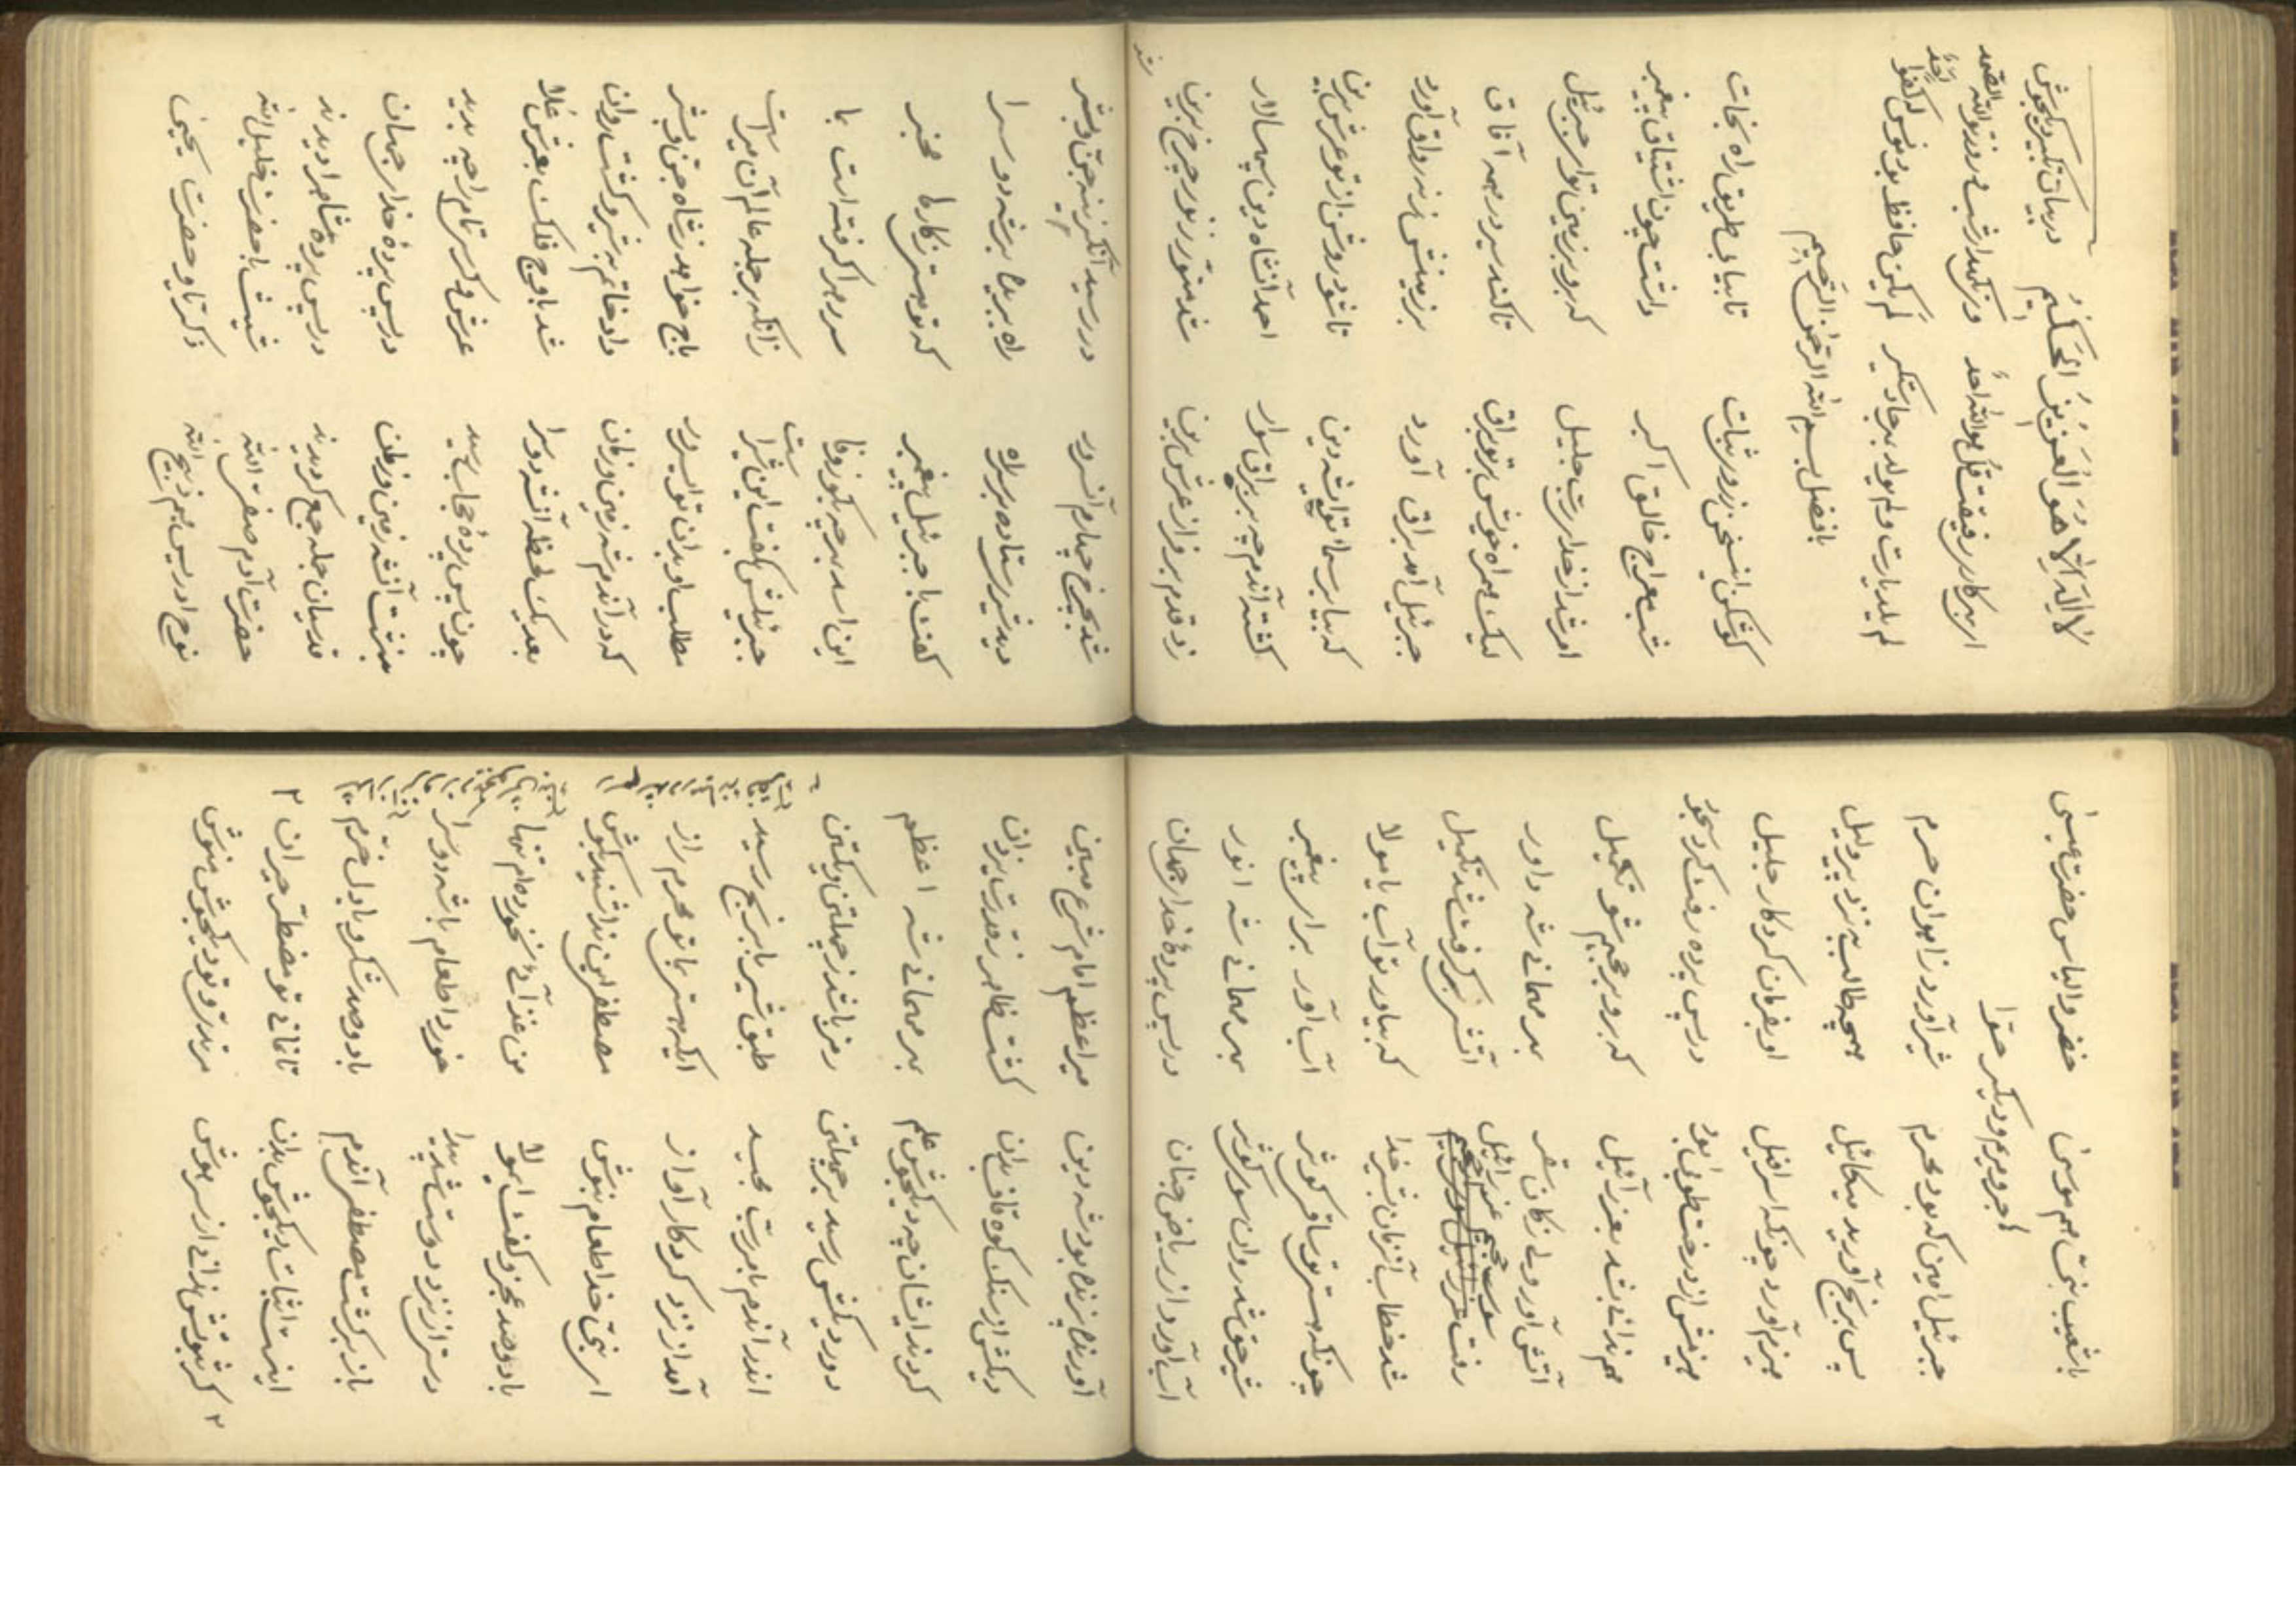 لا اله الا هو العزیز الحکیم در بیان تکبیر دیکجوش
ای بهر کار رفیقت قل هو الله احد وی نکهدار شب و روز تو الله الصمد
لم یلد یارت و لم یولد بهرجا دستکیر لم یکن حافظ بود مونس له کفوا احد
بافضل بسم الله الرحمن الرحیم
کوش کن این سخن ز روی ثبات تا بیابی طریق راه نجات
شب معراج خالق اکبر داشت چون اشتیاق پیغمبر
امر شد از خدای رب جلیل که برو بر زمین تو ای جبرئیل
لیک همراه خویش بر تو براق تا کند سیر در همه آفاق
جبرئیل آمد براق آورد بر زمینش ز نه رواق آورد
که بیا بر سما تو ای شه دین تا شود روشن از تو عرش برین
کشت آندم چه بر براق سوار احمد آنشاه دین سپهسالار
زد قدم بر فراز عرش برین شد منور ز نور چرخ برین
شد بچرخ چهارم آنسرور در رسید آنکزینه جن و بشر
دید شیری ستاده بر سر راه راه بریده بر شه دو سرا
کفت با جبرئیل پیغمبر که تو هستی ز کارها مخبر
این اسد بهر چه بکو ز وفا سر ره را کرفته است بما
جبرئیلش بکفت این شیر است زانکه بر جمله عالم آن میر است
مطلب او بدان تو ای سرور باج خواهد ز شاه جن و بشر
که در آندم شه زمین و زمان داد خاتم به شیر و کشت روان
بعد یک لحظه آنشه دو سرا شد باوج فلک بعرش علا
چون پس پرده حجاب رسید عرش و کرسی تمام را چه بدید
بنشست آنشه زمین و زمان در پس پرده خدای جهان
قدسیان جمله جمع کردیدند در پس پرده شاه را دیدند
حضرت آدم صفی الله شیث با حضرت خلیل الله
نوح ادریس هم ذبیح الله ذکریا و حضرت یحیی
با شعیب بنی هم موسی خضر و الیاس حضرت عیسی
اجر و مریم و دیکر حوا
جبرئیل امین که بود محرم شیر آورد ز اهوان حرم
پس برنج آورید میکائیل بهیچه طالب به نزد پیر دلیل
هیزم آورد چونکه اسرافیل او بفرمان کردکار جلیل
هیزمش از درخت طوبی بود در پس پرده رفت کرد سجود
هم ندائی شد بعزرائیل که برو بر جحیم شو تکمیل
آتش آور ولی ز کان سقر بهر مهمانی شه داور
رفت سوی جحیم عزرائیل آتشی بر کرفت شد تکمیل
شد خطاب آنزمان بشیر خدا که بیاور تو آب یا مولا
چونکه هستی تو ساقی کوثر آب آور برای پیغمبر
شیر حق شد روان سوی کوثر بهر مهمانی شه انور
آب آورد از ریاض جنان در پس پرده خدای جهان
آوریده بزیده بود شه دین میر اعظم امام شرع مبین
دیکش از سنک کوه قاف بدان کشت ظاهر ز قدرت یزدان
کردند ایشان چه دیکجوش علم بهر مهمانی شه اعظم
دور دیکش رسید بر چهلتن رمز باشد ز چهلتن و یکتن
اندر آندم بامر رب مجید طبق شیر با برنج رسید
آمد از نزد کردکار آواز ایکه هستی باتو محرم راز
ای نبی خدا طعام بنوش مصطفی این ندا شنید بکوش
با دو صد عجز و کفت ای مولا من غذائی نخورده ام تنها
دستی از نزد دوست شد پیدا خورد طعام با شه دو سرا
باز برکشت مصطفی آندم با دو صد شکر و با دل خرم
اینست اثبات دیکجوش بدان تا نمانی تو مضطر و حیران
کر نیوشش ندانی از سر هوش مزن تو دیکجوش منوش